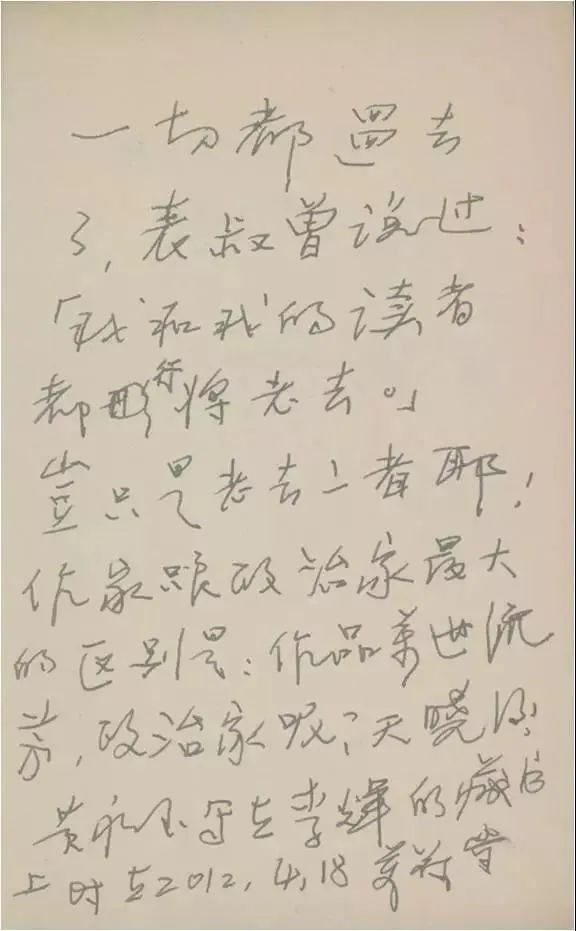 一切都過去
了，表叔曾说过：
「我和我的读者
都行将老去。」
豈只是老去二者耶！
作家跟政治家最大
的区别是：作品萬世流
芳，政治家呢？天曉得。
黄永玉写在李辉的藏书
上时在2012，4，18 萬荷堂